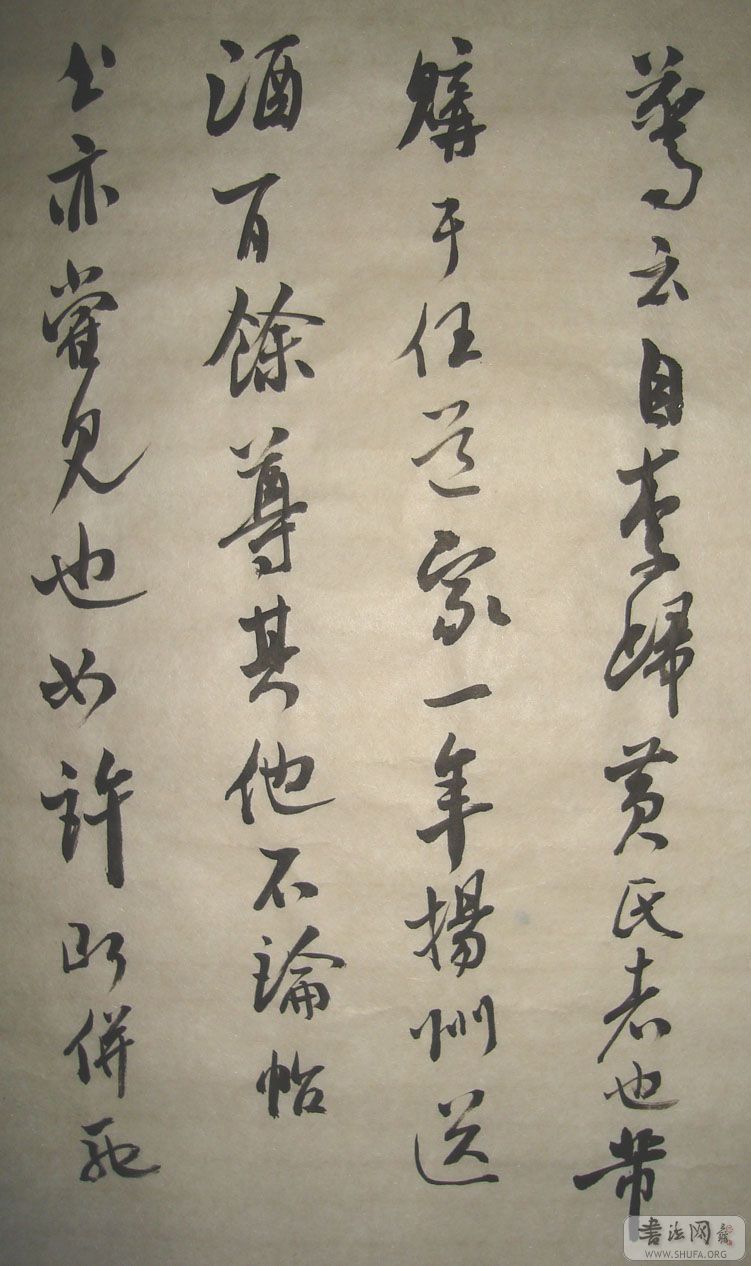 萼云自李歸黃氏者也帶
購于任道家一年揚州送
酒百餘尊其他不論帖
公亦嘗見也如許即併馳
書法网
WWW.SHUFA.ORG